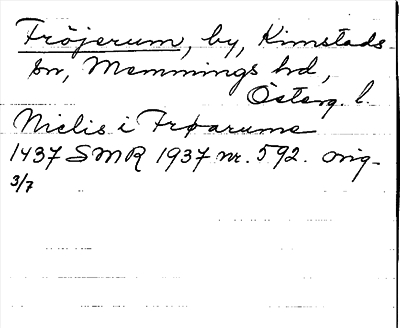 Fröjerum, by, Kimstads
sn, Memmings hd,
Österg. l.
Niclis i Frøarums
1437 SMR 1937 nr. 592. orig.
3/7